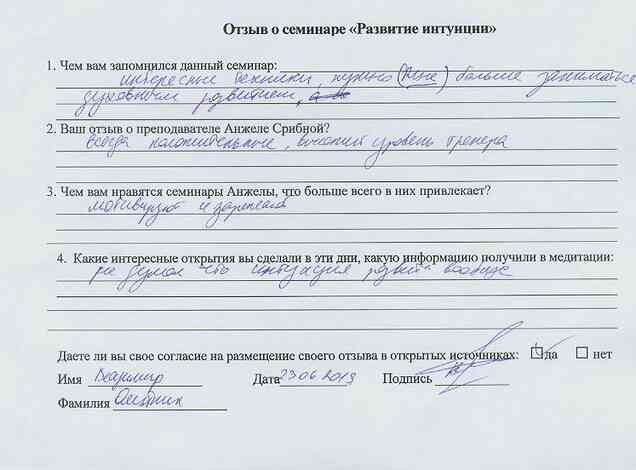 Отзыв о семинаре «Развитие интуиции»
1. Чем вам запомнился данный семинар:
интересные техники, нужно (мне) больше заниматься
духовным развитием,
2. Ваш отзыв о преподавателе Анжеле Срибной?
всегда положительное, высокий уровень тренера
3. Чем вам нравятся семинары Анжелы, что больше всего в них привлекает?
мотивируют и
4. Какие интересные открытия вы сделали в эти дни, какую информацию получили в медитации:
не думал что интуиция развита вообще
Даете ли вы свое согласие на размещение своего отзыва в открытых источниках: да нет
Имя Владимир Дата 23 06 2019 Подпись
Фамилия